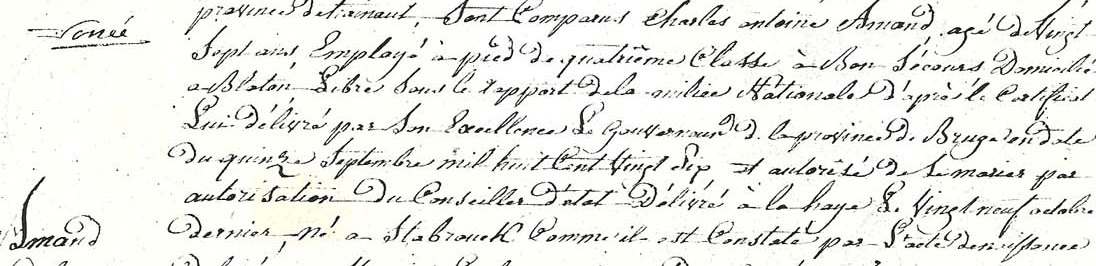 province de hainaut, Sont Comparus Charles antoine Amand, agé de Vingt
Sept ans, Employé à pied de quatrième Classe à Bon Sécours Domicilié
a Blaton Libre Sous le rapport de la milice Nationale d'après le Certificat
Lui délivré par Son Excellence Le Gouverneur d. la province de Bruge en date
du quinze Septembre mil huit Cent Vingt Six et autorisé de Se marier par
autorisation du Conseiller d'état Délivré à la haye Le Vingt neuf octobre
Amand
dernier, né a Stabrouck Comme il est Constaté par L'acte de naissance